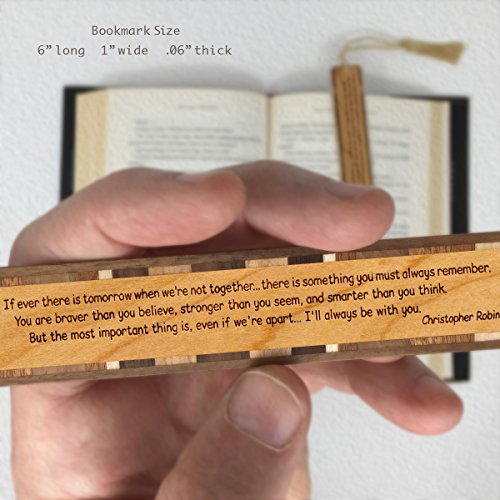 Bookmark Size
6” long 1” wide .06” thick
If ever there is tomorrow when we're not together...there is something you must always remember.
You are braver than you believe, stronger than you seem, and smarter than you think.
But the most important thing is, even if we're apart... I'll always be with you.
Christopher Robin